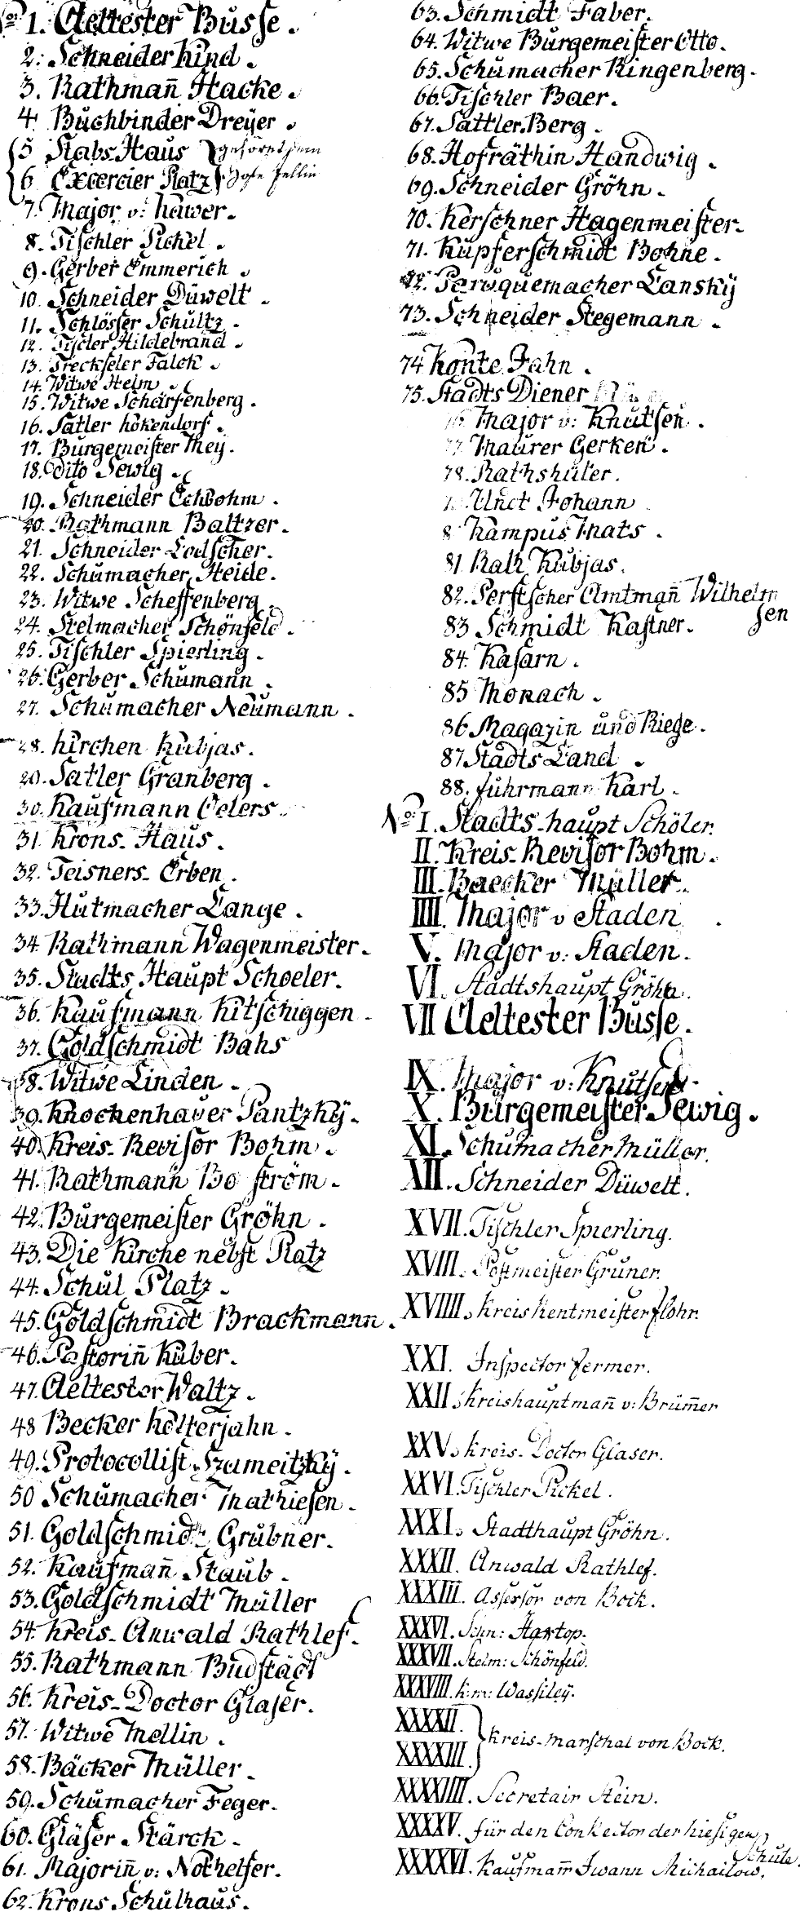 No 1. Aeltester Busse.
2. Schneider Kind.
3. Rathmañ Hacke.
4. Buchbinder Dreÿer.
5 Stabs-Haus gehöret zum
6 Excercier Platz Hofe Fellin
7. Major v:
8. Tischler Pickel.
9. Gerber Emmerich.
10. Schneider Düwelt.
11. Schlösser Schultz.
12. Tischler Hildebrand.
13. Treckseler Falck.
14. Witwe Helm.
15. Witwe Scharfenberg.
16. Satler Hökendorf.
17. Burgemeister They.
18. dito Sewig.
19. Schneider Eckbohm.
20. Rathmann Baltzer.
21. Schneider Lodscher.
22. Schumacher Heide.
23. Witwe Scheffenberg.
24. Stelmacher Schönfeld.
25. Tischler Spierling.
26. Gerber Schumann.
27. Schumacher Neumann.
28. Kirchen Kubjas.
29. Satler Granberg.
30. Kaufmann Oelers.
31. Krons-Haus.
32. Teisners-Erben.
33. Hutmacher Lange.
34. Rathmann Wagenmeister.
35. Stadts Haupt Schoeler.
36. Kaufmann Kitschiggen.
37. Goldschmidt Bahs
38. Witwe Linden.
39. Knockenhauer Pantzkÿ.
40. Kreis-Revisor Bohm.
41. Rathmann Boström.
42. Burgemeister Gröhn.
43. Die Kirche nebst Platz
44. Schul Platz.
45. Goldschmidt Brackmann.
46. Pastoriñ Kuber.
47. Aeltester Waltz.
48 Becker Kolterjahn.
49. Protocollist Szameitkÿ.
50 Schumacher Mathiesen.
51. Goldschmidt Grubner.
52. Kaufmañ Staub.
53. Goldschmidt Müller
54. Kreis-Anwald Rathlef.
55. Rathmann Budstädt
56. Kreis-Doctor Glaser.
57. Witwe Mellin.
58. Bäcker Müller.
59. Schumacher Feger.
60. Gläser Stärck.
61. Majoriñ v: Nothelfer.
62. Krons Schulhaus.
63. Schmidt Faber.
64. Witwe Burgemeister Otto.
65. Schumacher Ringenberg.
66. Tischler Baer.
67. Sattler Berg.
68. Hofräthin Handwig.
69. Schneider Gröhn.
70. Kerschner Hagenmeister.
71. Kupferschmidt Bohne.
72. Peruquemacher Lanskÿ
73. Schneider Stegemann.
74 Konte Jahn.
75. Stadts Diener
76. Major v: Knutsen.
77. Maurer Gerken.
78. Rathshuler.
Unct Johann
8 Kampus Mats.
81 Ralk Kubjas.
82. Perstscher Amtmañ Wilhelm
sen
83 Schmidt Kastner.
84. Kasarn.
85 Monach.
86 Magazin und Riege.
87 Stadts Land.
88. fuhrmann Karl.
No I. Stadts-haupt Schöler.
II. Kreis-Revisor Bohm.
III. Baecker Müller.
IIII. Major v Staden.
V. Major v: Staden.
VI. Stadtshaupt Gröhn.
VII Aeltester Busse.
IX. Major v: Knutsen.
X. Burgemeister Sewig.
XI. Schumacher Müller.
XII. Schneider Düwelt.
XVII. Tischler Spierling.
XVIII. Postmeister Gruner.
XVIIII. Kreis Rentmeister flohr.
XXI. Inspector Fermer.
XXII. Kreishauptmañ v: Brum̃er
XXV. Kreis-Doctor Glaser.
XXVI. Tischler Pickel.
XXXI. Stadthaupt Gröhn.
XXXII. Anwald Rathlef.
XXXIII. Assessor von Bock.
XXXVI. Schn: Hartop.
XXXVII. Stelm: Schönfeld.
XXXVIII. K.m: Wassileÿ.
XXXXII.
XXXXIII. Kreis-marschal von Bock.
XXXXIIII. Secretair Stein.
XXXXV. für den Conrector der hiesigen
Schule.
XXXXVI. Kaufmañ Iwann Michailow.